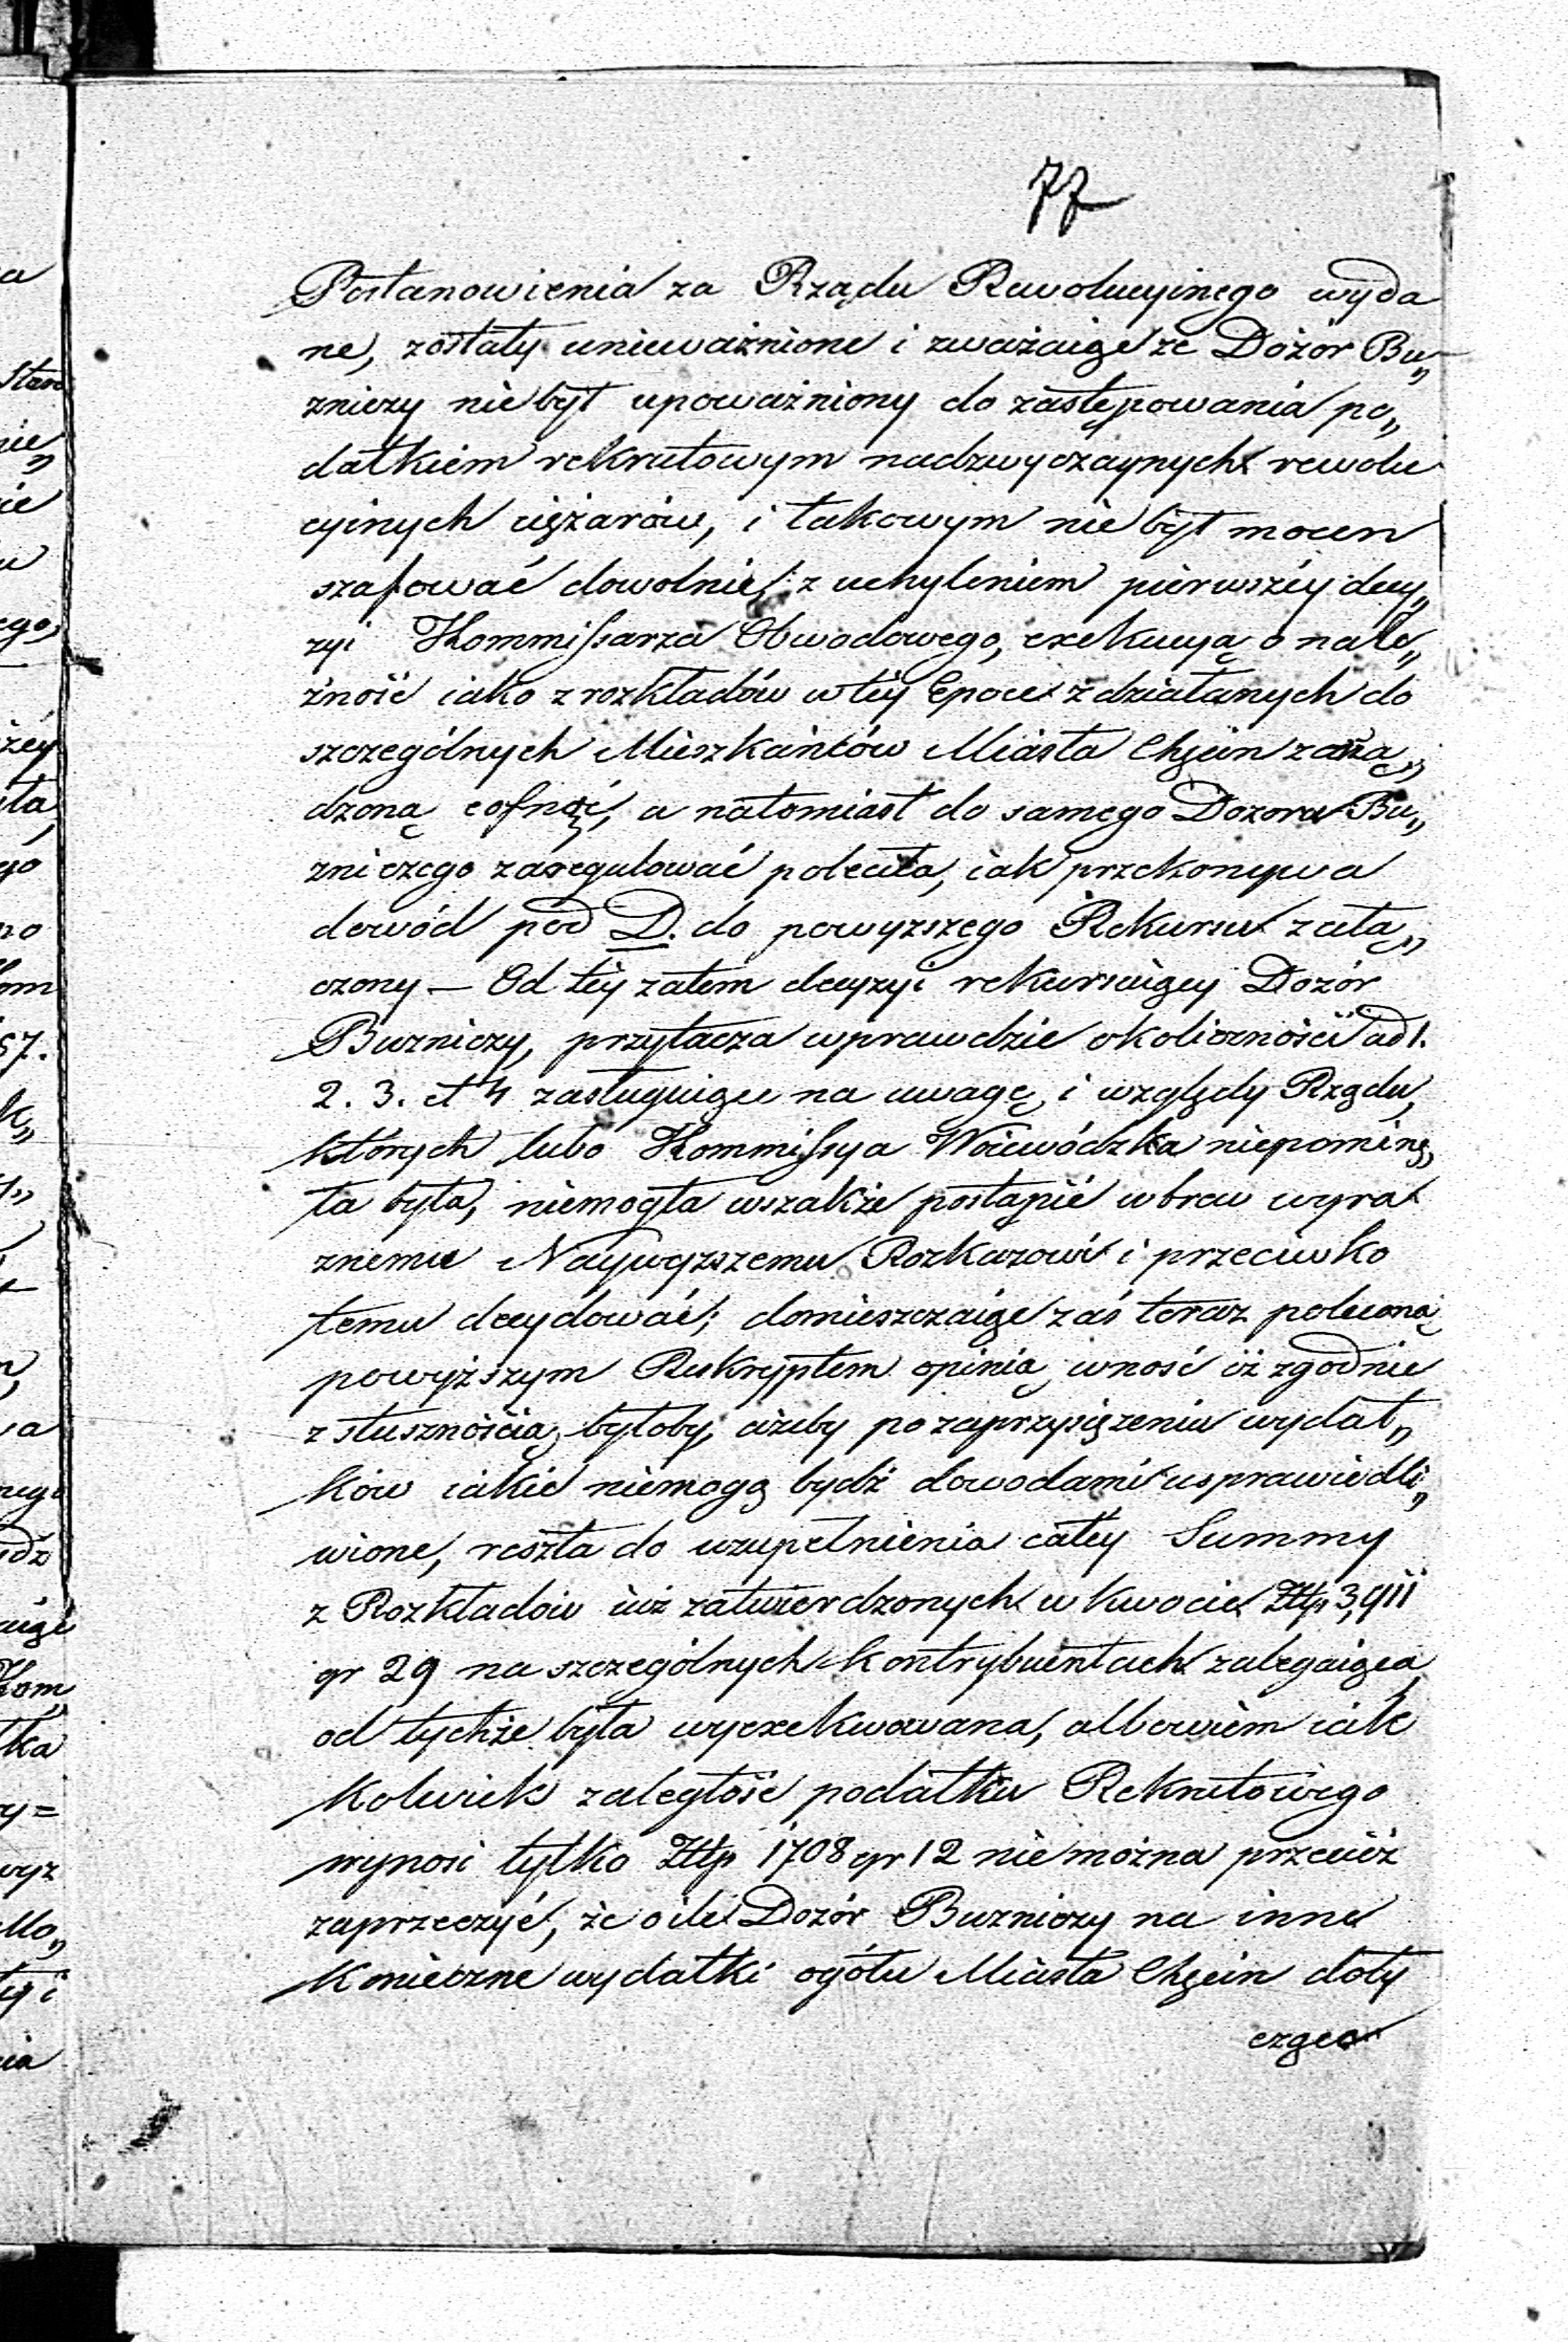 77
Postanowienia za Rządu Rewolucyinego wyda
ne, zostały unieważnione i zważaiąc że Dozór Bu„
zniczy nie był upoważniony do zastępowania po„
datkiem rekrutowym nadzwyczaynych rewolu
cyinych ciężarów, i takowym nie był mocen
szafować dowolnie, z uchyleniem pierwszéy decy„
zyi Kommissarza Obwodowego, exekucyą o nale„
żność iako z rozkładów w téy Epoce zdziałanych do
szczególnych Mieszkańców Miasta Chęcin zarzą„
dzoną cofnąć, a natomiast do samego Dozoru Bu„
zniczego zaregulować poleciła, iak przekonywa
dowód pod D. do powyzszego Rekursu załą„
czony — Od téy zatem decyzyi rekursuiący Dozór
Buzniczy, przytacza wprawdzie okoliczności ad 1.
2. 3. et 4 zasługuiące na uwagę, i względy Rządu,
których lubo Kommissya Woiewódzka niepominę„
ła była, niemogła wszakże postąpić wbrew wyra
znemu Naywyzszemu Rozkazowi i przeciwko
temu decydować; domieszczaiąc zaś teraz poleconą
powyższym Reskryptem opinią, wność iż zgodnie
z słusznością byłoby, ażeby po zaprzysiężeniu wydat„
ków iakie niemogą bydź dowodami usprawiedli„
wione, reszta do uzupełnienia całéy Summy
z Rozkładów iuż zatwierdzonych w kwocie Złtp 3,911
gr 29 na szczególnych kontrybuentach zalegaiąca,
od tychże była wyexekwowana, albowiem iak
kolwiek zaległość podatku Rekrutowego
wynosi tylko Złtp 1708 gr 12 nie można przecież
zaprzeczyć, że o ile Dozór Buzniczy na inne
konieczne wydatki ogółu Miasta Chęcin doty
czące